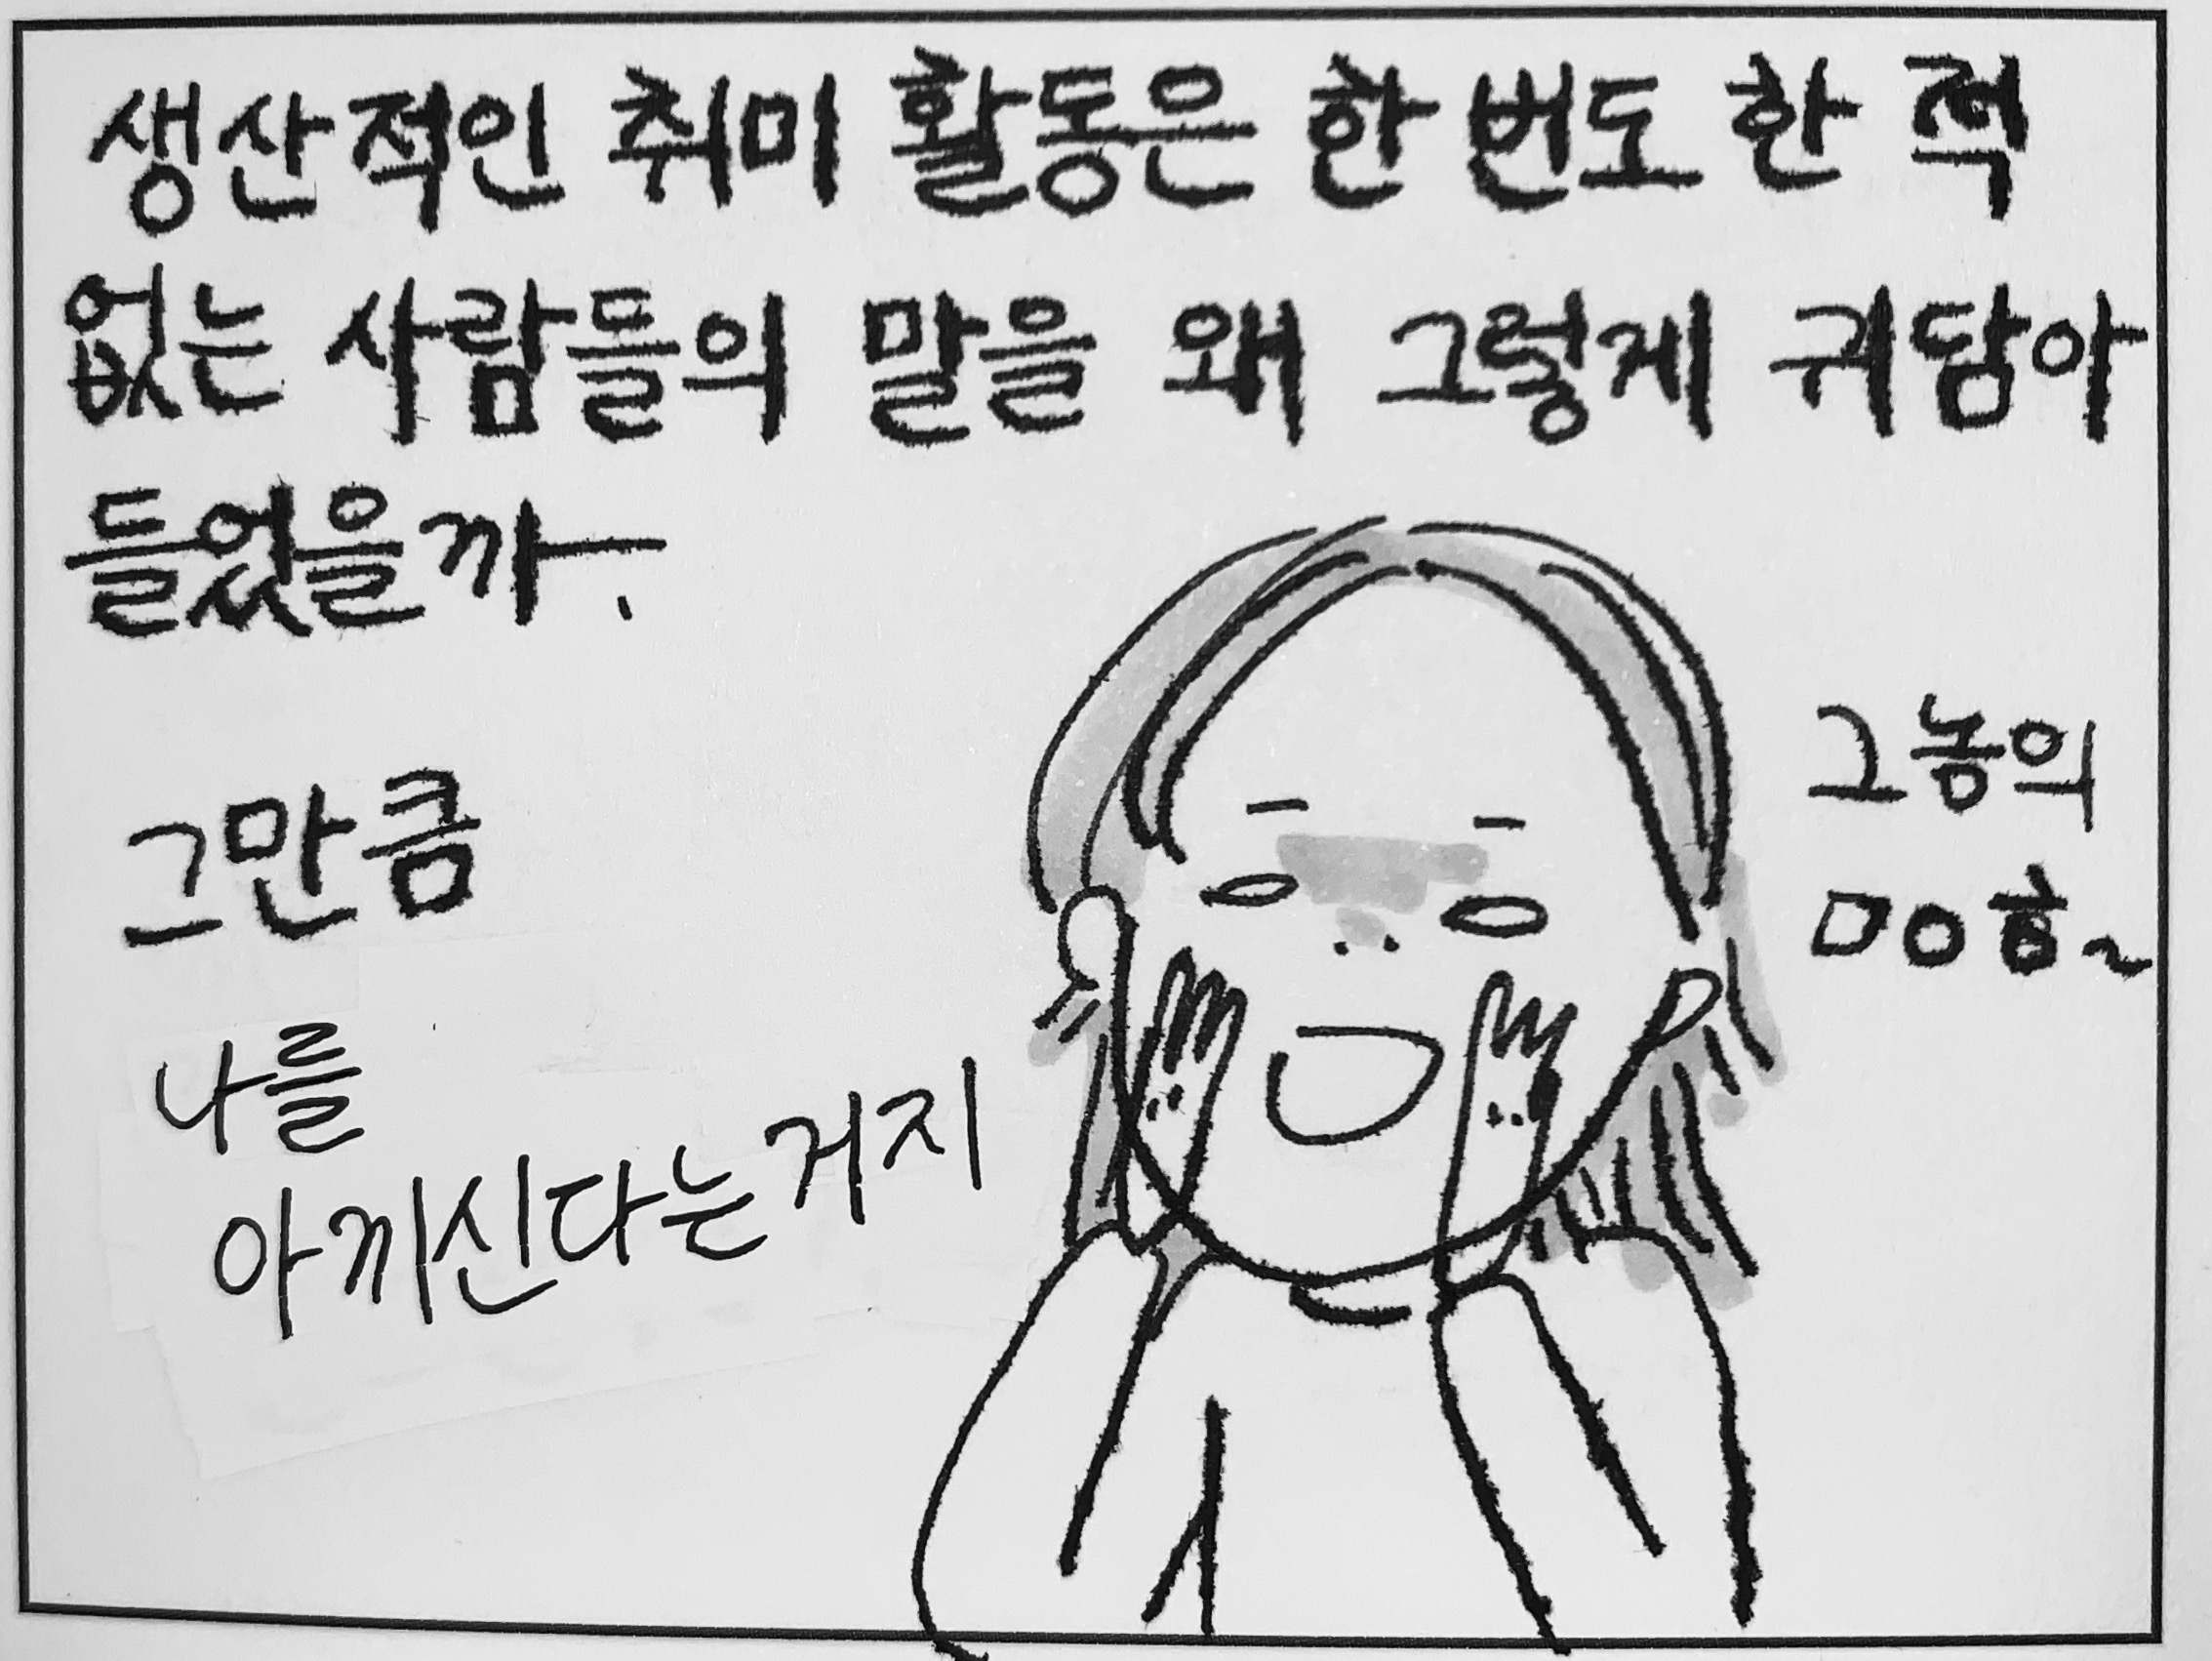 생산적인 취미 활동은 한 번도 한 적
없는 사람들의 말을 왜 그렇게 귀담아
들었을까.
그만큼
나를
아끼신다는거지
그놈의
ㅁㅇ흠~